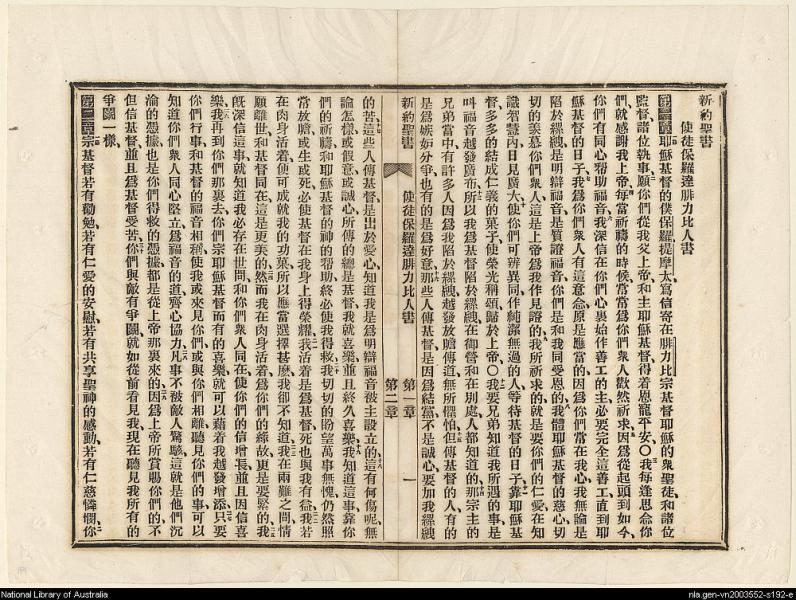 新約聖書
使徒保羅達腓力比人書
第一章耶穌基督的僕保羅提摩太寫信寄在腓力比宗基督耶穌的衆聖徒和諸位
監督諸位執事、願你們從我父上帝和主耶穌基督得着恩寵平安○我每逢思念你
們、就感謝我上帝、每當祈禱的時候、常常爲你們衆人歡然祈求、因爲從起頭到如今、
你們有同心幫助福音、我深信在你們心裏始作善工的主、必要完全這善工、直到耶
穌基督的日子、我爲你們衆人有這意念、原是應當的、因爲你們常在我心、我無論是
陷於縲絏、是明辯福音、是質證福音、你們是和我同受恩的、我體耶穌基督的慈心、切
切的羨慕你們衆人、這是上帝爲我作見證的、我所祈求的、就是要你們的仁愛、在知
識智慧內日見廣大、使你們可辨異同、作純潔無過的人、等待基督的日子、靠耶穌基
督多多的結成仁義的菓子、使榮光稱頌歸於上帝○我要兄弟知道我所遇的事、是
叫福音越發廣布、所以我爲基督陷於縲絏、在御營和在別處、人都知道的、那宗主的
兄弟當中、有許多人因爲我陷於縲絏、越發放膽傳道、無所懼怕、但傳基督的人、有的
是爲嫉妒分爭、也有的是爲好意、那些人傳基督是因爲結黨、不是誠心、要加我縲絏
新約聖書 使徒保羅達腓力比人書 第一章 一
第二章
的苦、這些人傳基督是出於愛心、知道我是爲明辯福音被主設立的、這有何傷呢、無
論怎樣、或假意、或誠心、所傳的總是基督、我就喜樂、並且終久喜樂、我知道這事、靠你
們的祈禱、和耶穌基督的神的幫助、終必使我得救、我切切的盼望、萬事無愧、仍然照
常放膽、或生或死、必使基督在我身上得榮耀、我活着是爲基督、死也與我有益、我若
在肉身活着、便可成就我的功菓、所以應當選擇甚麽、我卻不知道、我在兩難之間、情
願離世和基督同在、這是更美的、然而我在肉身活着、爲你們的緣故、更是要緊的、我
旣深信這事、就知道我必存在世間、和你們衆人同在、使你們的信增長、並且因信喜
樂、我再到你們那裏去、你們宗耶穌基督而有的喜樂、就可以藉着我越發增添、只要
你們行事和基督的福音相稱、使我或來見你們、或與你們相離、聽見你們的事、可以
知道你們衆人同心堅立、爲福音的道、齊心協力、凡事不被敵人驚駭、這就是他們沉
淪的憑據、也是你們得救的憑據、都是從上帝那裏來的、因爲上帝所賞賜你們的、不
但信基督、並且爲基督受苦、你們與敵有爭鬭、就如從前看見我、現在聽見我所有的
爭鬭一樣、
第二章宗基督若有勸勉、若有仁愛的安慰、若有共享聖神的感動、若有仁慈憐憫、你
National Library of Australia
nla.gen-vn2003552-s192-e